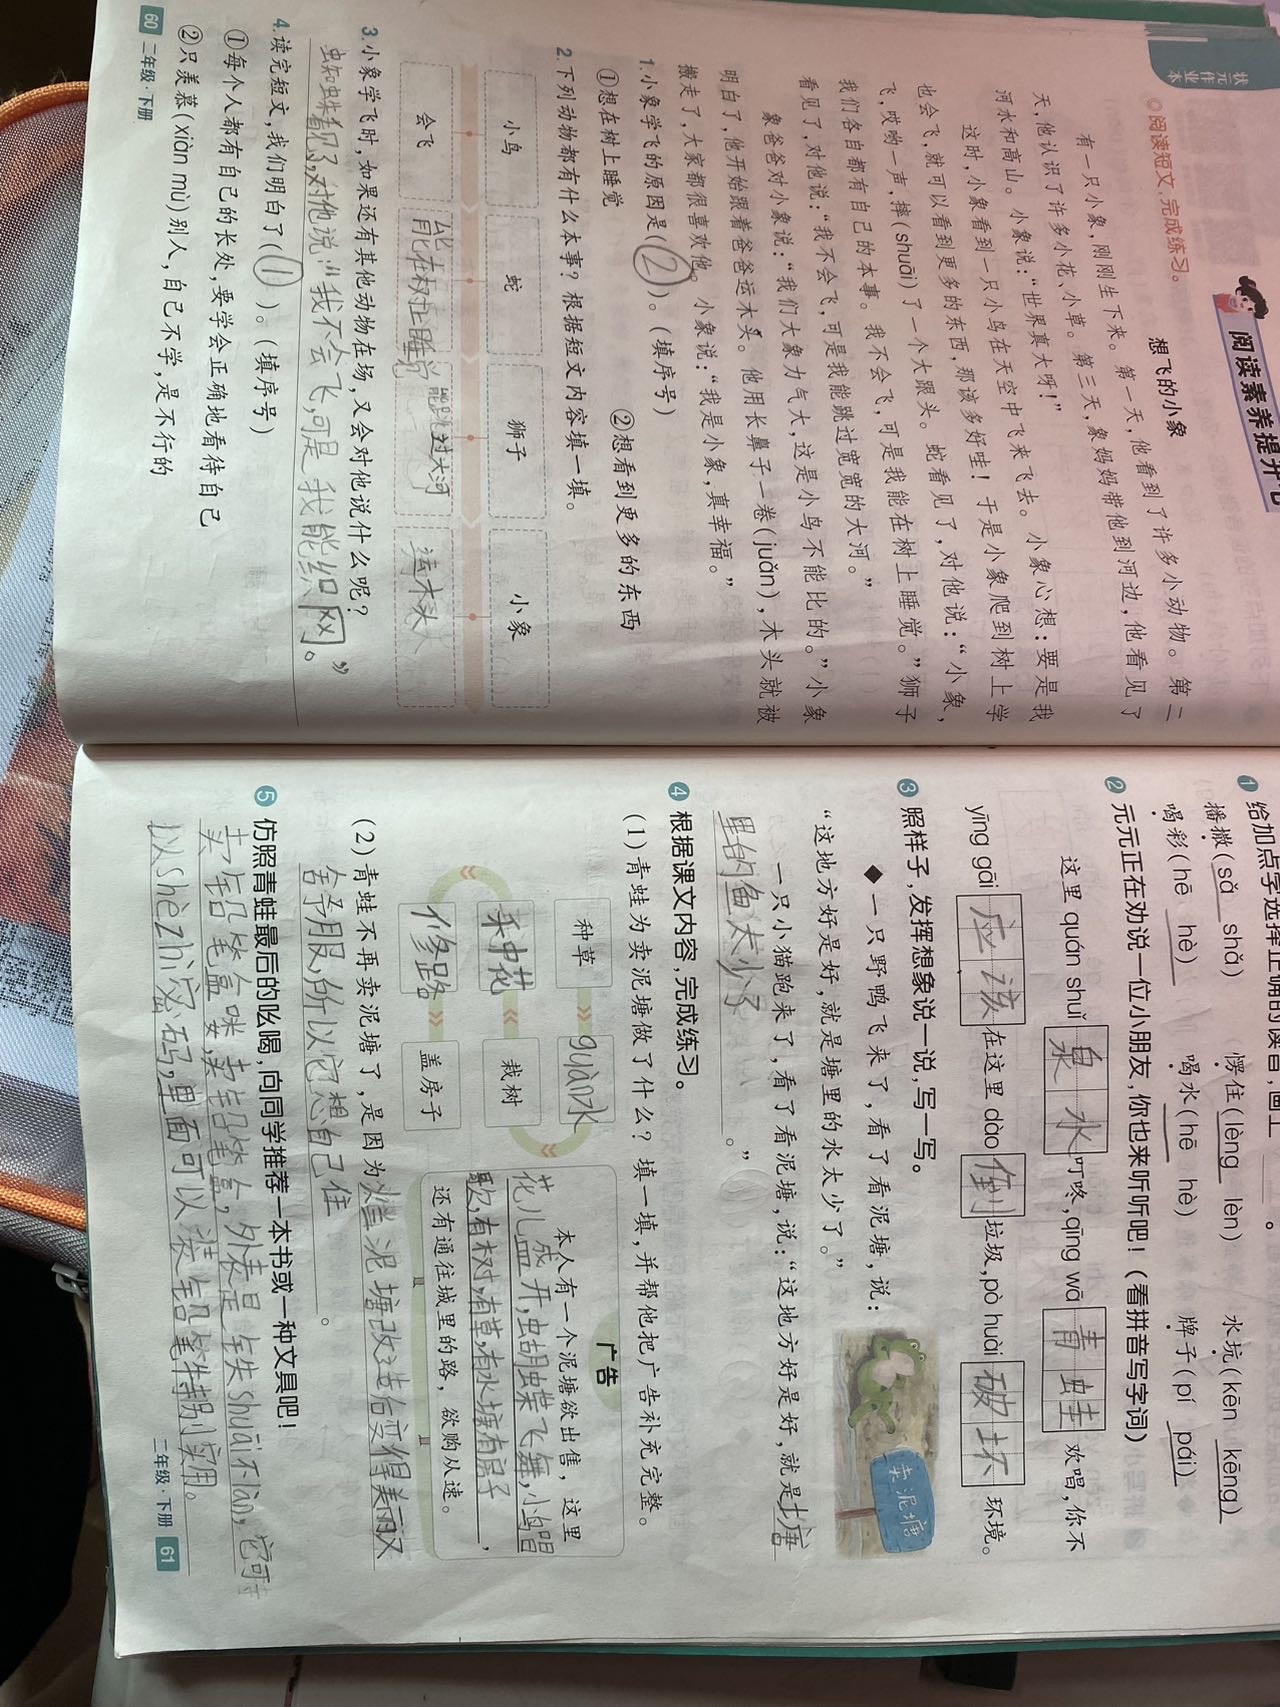 状元
作业本
阅读素养提升
◎阅读短文,完成练习。
想飞的小象
有一只小象,刚刚生下来。第一天,他看到了许多小动物。第二
天,他认识了许多小花、小草。第三天,象妈妈带他到河边,他看见了
河水和高山。小象说:“世界真大呀!”
这时,小象看到一只小鸟在天空中飞来飞去。小象心想:要是我
也会飞,就可以看到更多的东西,那该多好哇!于是小象爬到树上学
飞,哎哟一声,摔(shuāi)了一个大跟头。蛇看见了,对他说:“小象,
我们各自都有自己的本事。我不会飞,可是我能在树上睡觉。”狮子
看见了,对他说:“我不会飞,可是我能跳过宽宽的大河。”
象爸爸对小象说:“我们大象力气大,这是小鸟不能比的。”小象
明白了,他开始跟着爸爸运木头。他用长鼻子一卷(juǎn),木头就被
搬走了,大家都很喜欢他。小象说:“我是小象,真幸福。”
1.小象学飞的原因是(②)。(填序号)
①想在树上睡觉 ②想看到更多的东西
2.下列动物都有什么本事?根据短文内容填一填。
小鸟 蛇 狮子 小象
会飞 能在树上睡觉 能跳过大河 运木头
3.小象学飞时,如果还有其他动物在场,又会对他说什么呢?
蜘蛛看见了,对他说:“我不会飞,可是我能织网。”
4.读完短文,我们明白了(①)。(填序号)
①每个人都有自己的长处,要学会正确地看待自己
②只羡慕(xiàn mù)别人,自己不学,是不行的
60 二年级·下册
1 给加点字选择正确的读音,画上
播撒(sǎ shǎ) 愣住(lèng lèn) 水坑(kēn kēng)
喝彩(hē hè) 喝水(hē hè) 牌子(pí pái)
2 元元正在劝说一位小朋友,你也来听听吧!(看拼音写字词)
这里 quán shuǐ 泉水 叮咚,qīng wā 青蛙 欢唱,你不
yīng gāi 应该 在这里 dào 倒 垃圾,pò huài 破坏 环境。
3 照样子,发挥想象说一说,写一写。
◆一只野鸭飞来了,看了看泥塘,说:
“这地方好是好,就是塘里的水太少了。”
卖泥塘
一只小猫跑来了,看了看泥塘,说:“这地方好是好,就是塘
里的鱼太少了。”
4 根据课文内容,完成练习。
(1)青蛙为卖泥塘做了什么?填一填,并帮他把广告补充完整。
种草 guàn水
采中花 栽树
修路 盖房子
广告
本人有一个泥塘欲出售,这里
花儿盛开,蝴蝶飞舞,小鸟唱
歌,有树,有草,有水塘有房子,
还有通往城里的路,欲购从速。
(2)青蛙不再卖泥塘了,是因为烂泥塘改造后变得美丽又
舍舒服,所以它想自己住。
5 仿照青蛙最后的吆喝,向同学推荐一本书或一种文具吧!
卖铅笔盒咪,卖铅笔盒,外表是铁shuāi不làn,它可
以shèzhì密码,里面可以装铅笔特别实用。
二年级·下册 61